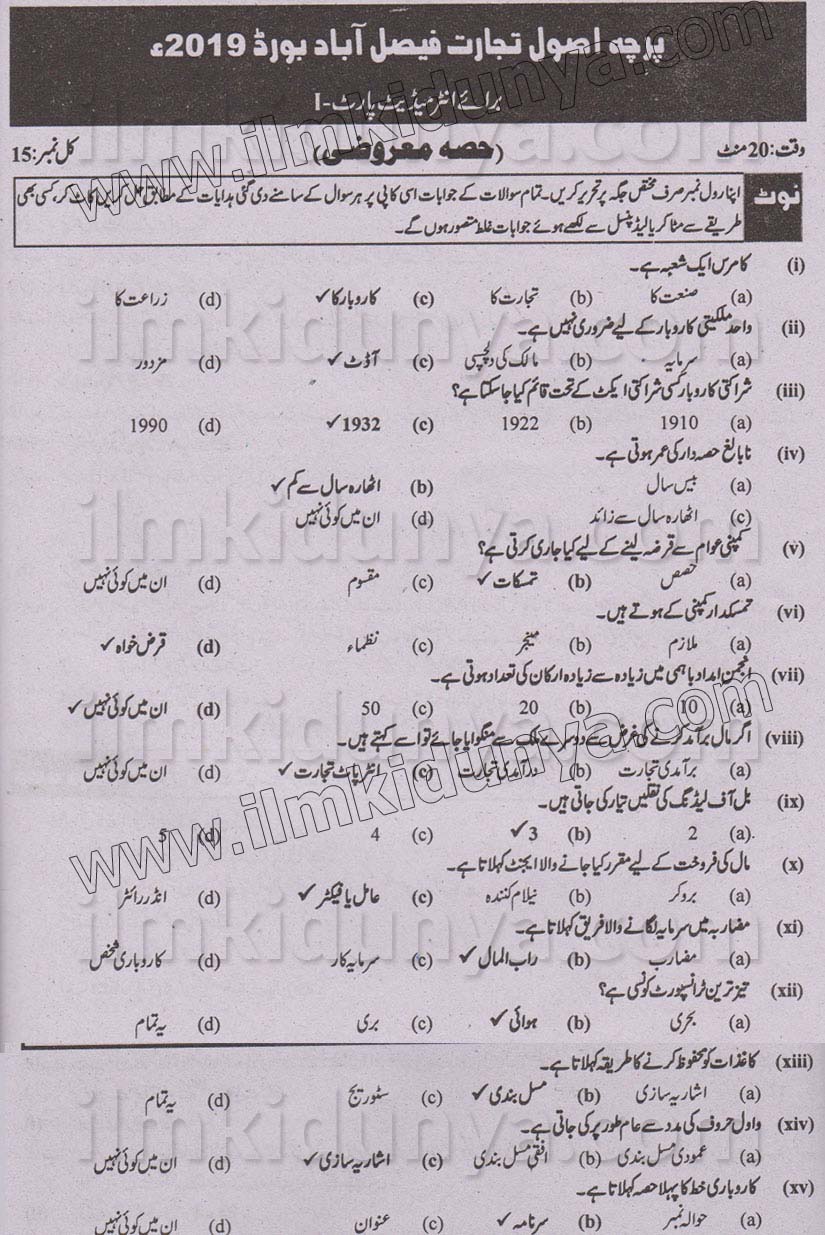 پرچہ اصول تجارت فیصل آباد بورڈ 2019ء
برائے انٹرمیڈیٹ پارٹ-I
وقت:20 منٹ (حصہ معروضی) کل نمبر:15
نوٹ اپنا رول نمبر صرف مختص جگہ پر تحریر کریں۔ تمام سوالات کے جوابات اسی کاپی پر ہر سوال کے سامنے دی گئی ہدایات کے مطابق حل کریں کاٹ کر، کسی بھی
طریقے سے مٹا کر یا لیڈ پنسل سے لکھے ہوئے جوابات غلط متصور ہوں گے۔
(i) کامرس ایک شعبہ ہے۔
(a) صنعت کا (b) تجارت کا (c) کاروبار کا ✓ (d) زراعت کا
(ii) واحد ملکیتی کاروبار کے لیے ضروری نہیں ہے۔
(a) سرمایہ (b) مالک کی دلچسپی (c) آڈٹ ✓ (d) مزدور
(iii) شراکتی کاروبار کسی شراکتی ایکٹ کے تحت قائم کیا جاسکتا ہے؟
(a) 1910 (b) 1922 (c) 1932 ✓ (d) 1990
(iv) نابالغ حصہ دار کی عمر ہوتی ہے۔
(a) بیس سال (b) اٹھارہ سال سے کم ✓
(c) اٹھارہ سال سے زائد (d) ان میں کوئی نہیں
(v) کمپنی عوام سے قرضہ لینے کے لیے کیا جاری کرتی ہے؟
(a) حصص (b) تمسکات ✓ (c) مقسوم (d) ان میں کوئی نہیں
(vi) تمسکدار کمپنی کے ہوتے ہیں۔
(a) ملازم (b) مینجر (c) نظماء (d) قرض خواہ ✓
(vii) انجمن امداد باہمی میں زیادہ سے زیادہ ارکان کی تعداد ہوتی ہے۔
(a) 10 (b) 20 (c) 50 (d) ان میں کوئی نہیں ✓
(viii) اگر مال برآمد کرنے کی غرض سے دوسرے ملک سے منگوایا جائے تو اسے کہتے ہیں۔
(a) برآمدی تجارت (b) درآمدی تجارت (c) انٹرپاٹ تجارت ✓ (d) ان میں کوئی نہیں
(ix) بل آف لیڈنگ کی نقلیں تیار کی جاتی ہیں۔
(a) 2 (b) 3 ✓ (c) 4 (d) 5
(x) مال کی فروخت کے لیے مقرر کیا جانے والا ایجنٹ کہلاتا ہے۔
(a) بروکر (b) نیلام کنندہ (c) عامل یا فیکٹر ✓ (d) انڈر رائٹر
(xi) مضاربہ میں سرمایہ لگانے والا فریق کہلاتا ہے۔
(a) مضارب (b) راب المال ✓ (c) سرمایہ کار (d) کاروباری شخص
(xii) تیز ترین ٹرانسپورٹ کونسی ہے؟
(a) بحری (b) ہوائی ✓ (c) بری (d) یہ تمام
(xiii) کاغذات کو محفوظ کرنے کا طریقہ کہلاتا ہے۔
(a) اشاریہ سازی (b) مسل بندی ✓ (c) سٹوریج (d) یہ تمام
(xiv) واول حروف کی مدد سے عام طور پر کی جاتی ہے۔
(a) عمودی مسل بندی (b) افقی مسل بندی (c) اشاریہ سازی ✓ (d) ان میں کوئی نہیں
(xv) کاروباری خط کا پہلا حصہ کہلاتا ہے۔
(a) حوالہ نمبر (b) سرنامہ ✓ (c) عنوان (d) ان میں کوئی نہیں
www.ilmkidunya.com
www.ilmkidunya.com
ilmkidunya.com
ilmkidunya.com
ilmkidunya.com
ilmkidunya.com
ilmkidunya.com
ilmkidunya.com